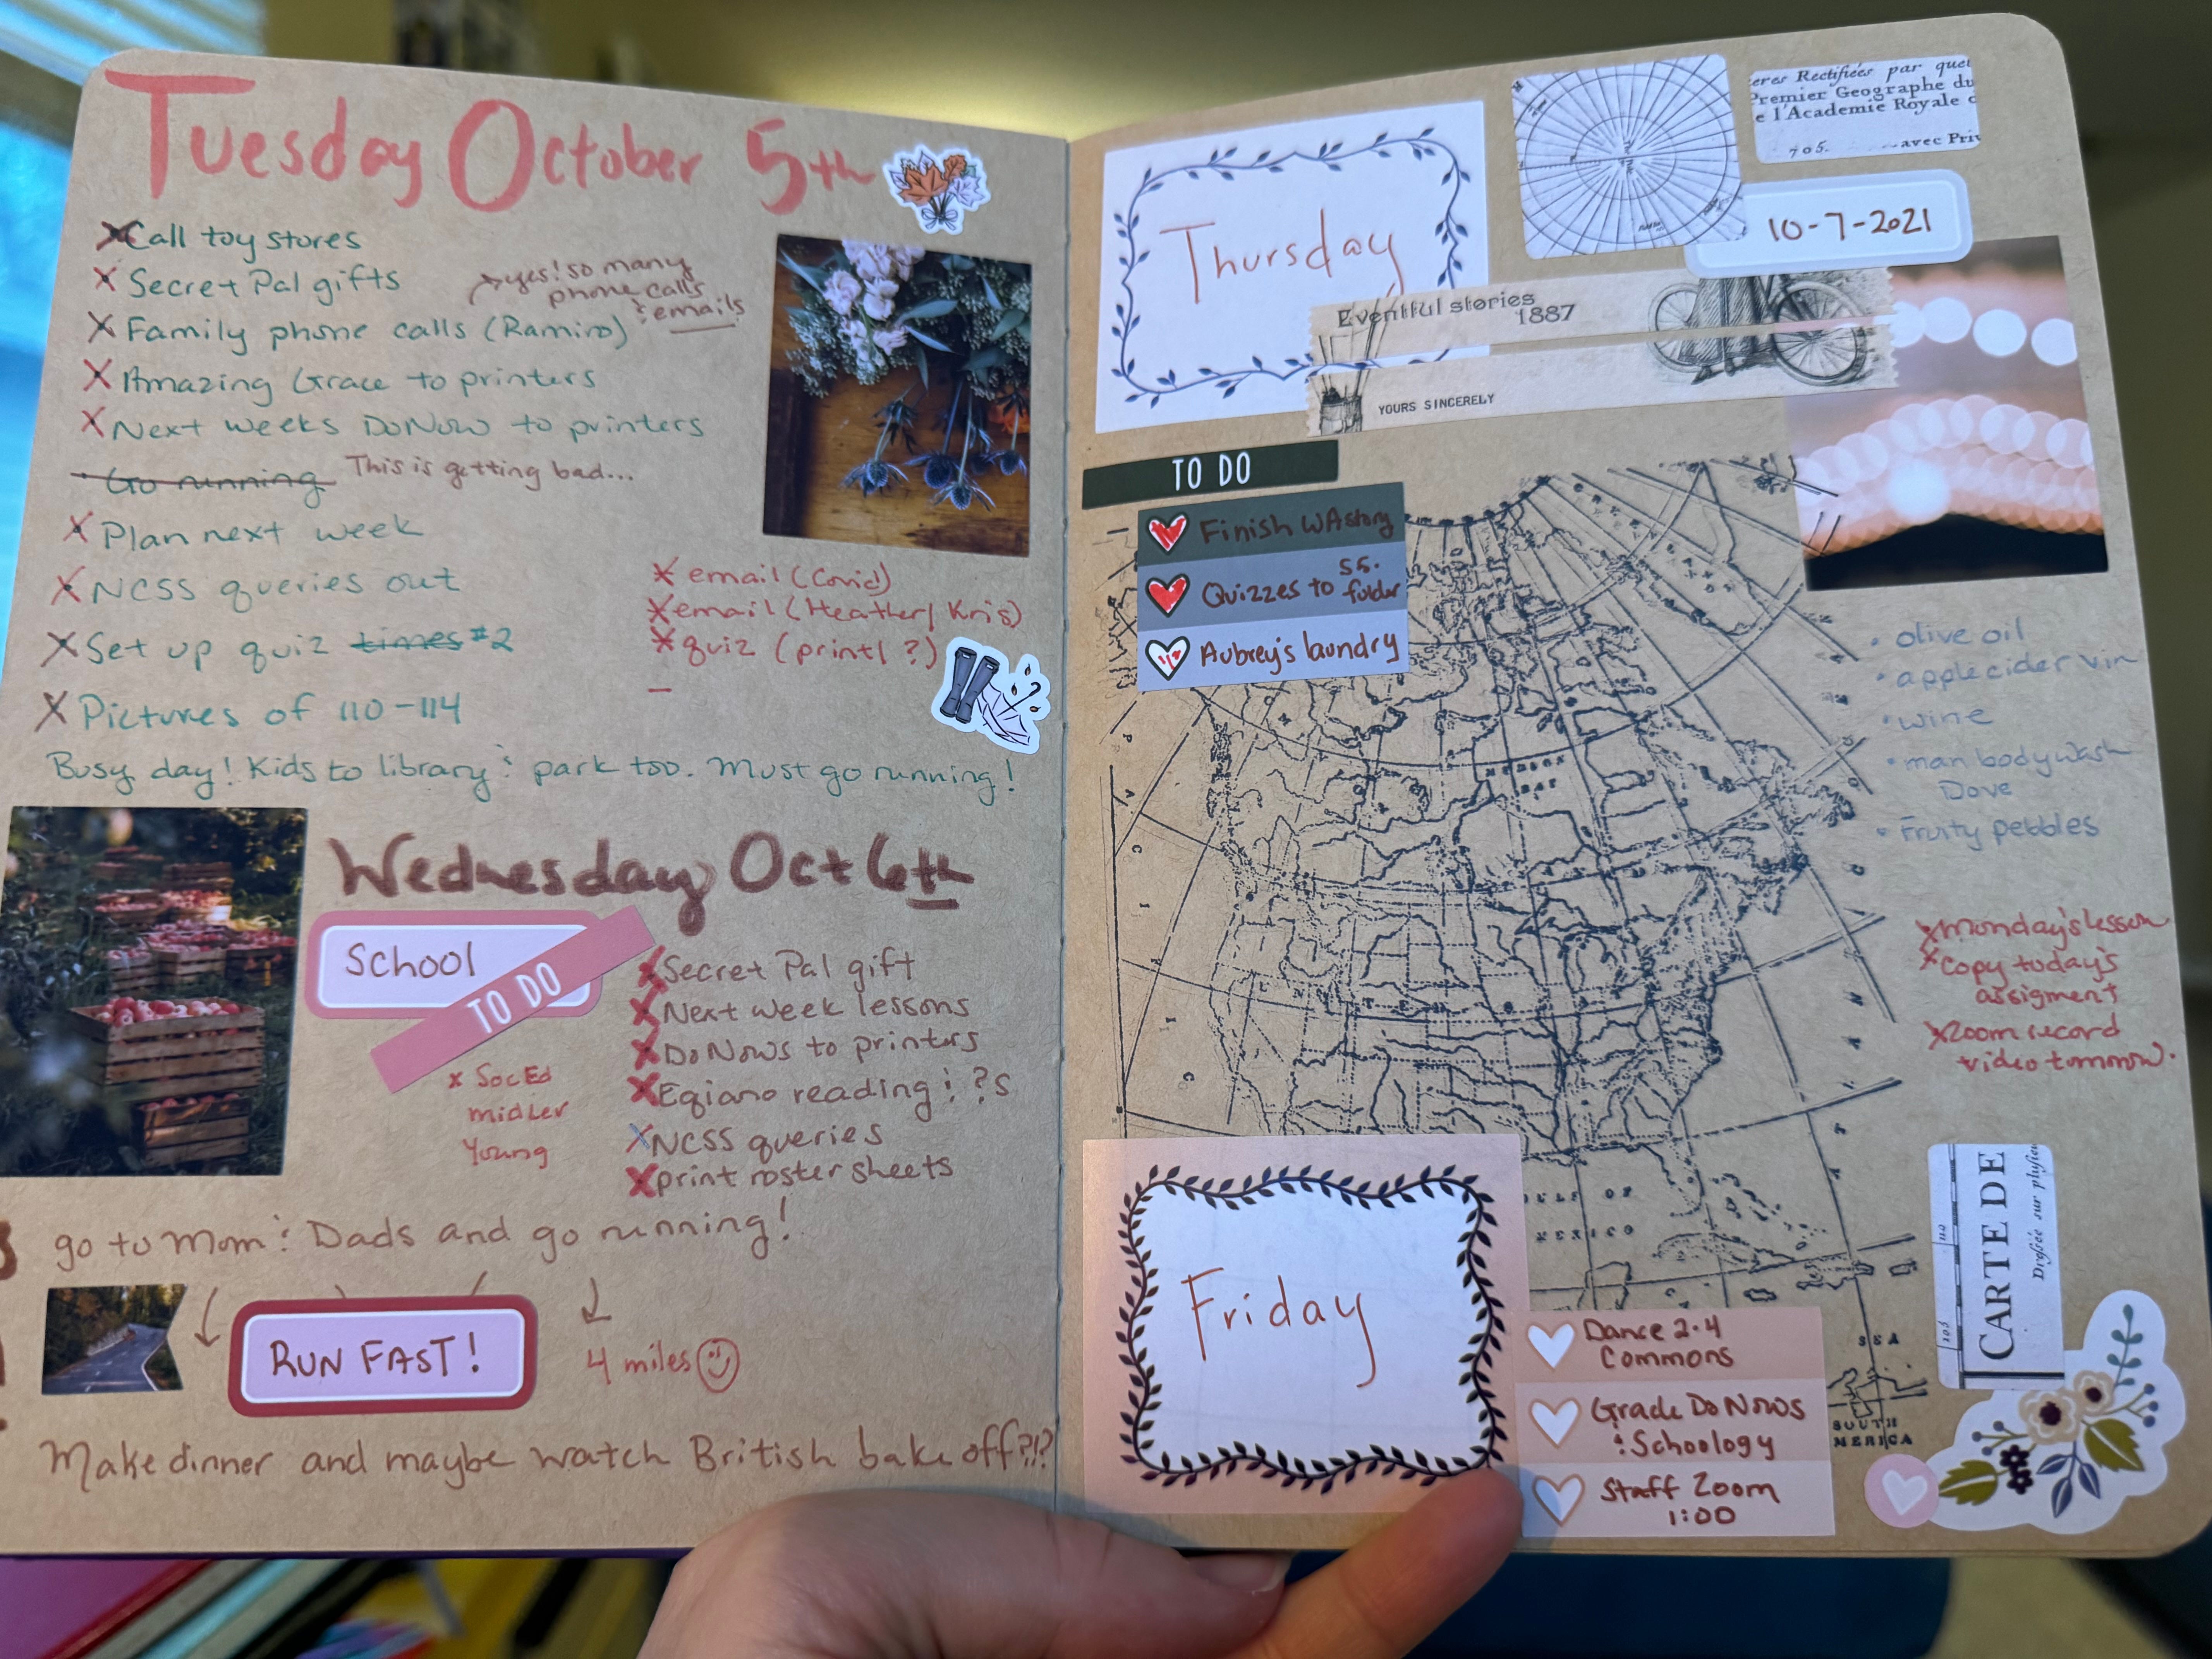 Tuesday October 5th
Call toy stores
Secret Pal gifts
yes! so many
phone calls
& emails
Family phone calls (Ramiro)
Amazing Grace to printers
Next weeks DoNow to printers
Go running This is getting bad...
Plan next week
NCSS queries out
Set up quiz times #2
Pictures of 110-114
email (Covid)
email (Heather/ Kris)
quiz (print/ ?)
Busy day! Kids to library & park too. Must go running!
Wednesday Oct 6th
School
TO DO
Secret Pal gift
Next week lessons
DoNows to printers
Eqiano reading & ?s
NCSS queries
print roster sheets
x SocEd
midLev
Young
go to Mom & Dads and go running!
RUN FAST!
4 miles
Make dinner and maybe watch British bake off?!?
Thursday
eres Rectifiées par quel
Premier Geographe du
e l'Academie Royale
705. avec Pri
10-7-2021
Eventful stories
1887
YOURS SINCERELY
TO DO
Finish WA story
Quizzes to SS. folder
Aubrey's laundry
• olive oil
• apple cider vin
• wine
• man bodywash
Dove
• Fruity pebbles
Monday's lesson
Copy today's
assigment
Zoom record
video tomorrow.
MEXICO
SEA
SOUTH
MERICA
CARTE DE
Dressée sur plusieu
Friday
Dance 2-4
Commons
Grade DoNows
& Schoology
Staff Zoom
1:00